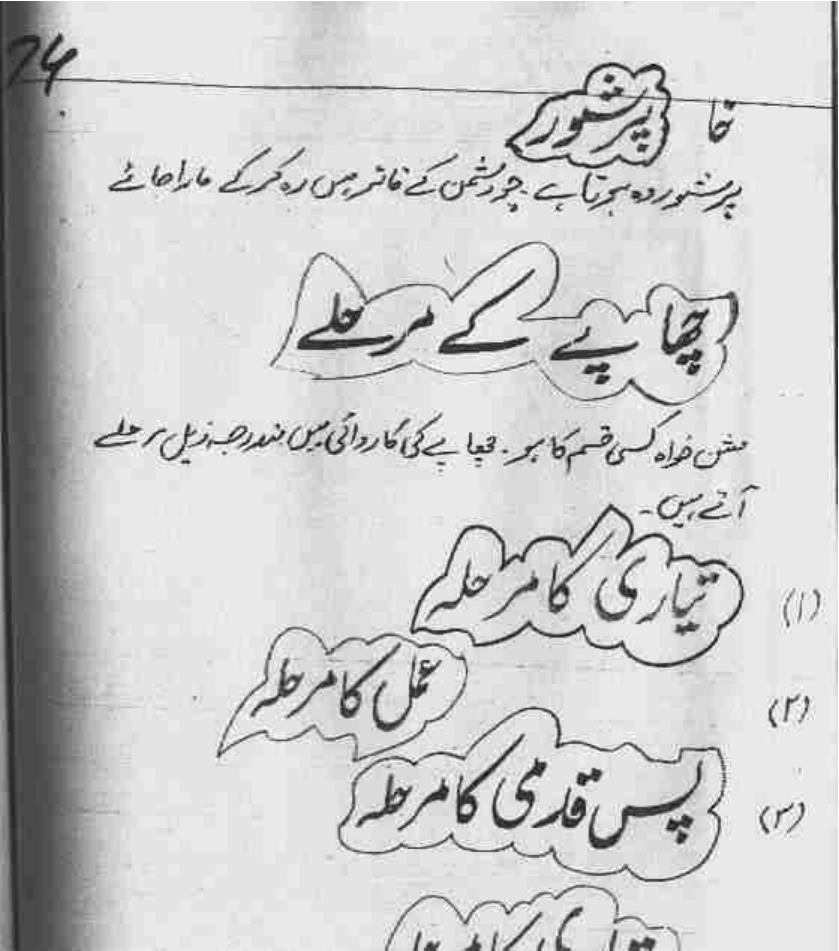 74
خا پرشور
پرشور وہ ہوتا ہے۔ جو دشمن کے فائر میں رہ کر کے مارا جائے
چھاپے کے مرحلے
مشن خواہ کسی قسم کا ہو۔ چھاپے کی کاروائی میں مندرجہ ذیل مرحلے
آتے ہیں۔
(۱) تیاری کا مرحلہ
(۲) عمل کا مرحلہ
(۳) پس قدمی کا مرحلہ